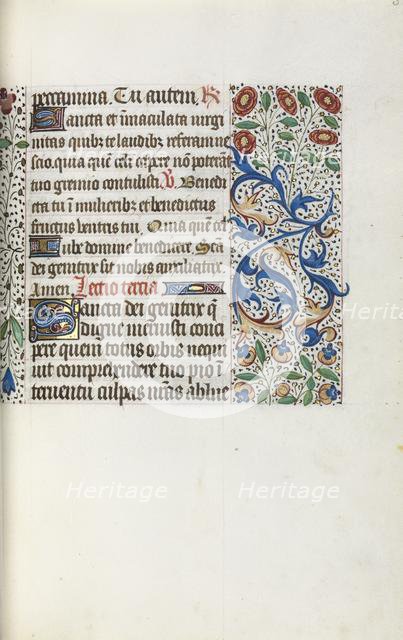 peccamina. Tu autem. R
Sancta et immaculata virgi
nitas quibz te laudibz referam nes
cio. quia quē celi capere nō poterāt
tuo gremio contulisti. V. Benedi
cta tu ī mulieribz et benedictus
fructus ventris tui. Quia quē celi
Iube domine benedicere. Scā
dei genitrix sit nobis auxiliatrix.
Amen. Lectio tercia
Sancta dei genitrix q̄
digne meruisti conci
pere quem totus orbis nequi
uit comprehendere tuo pio ī
teruentu culpas nr̄as ablue
Heritage
Heritage
Heritage
Heritage